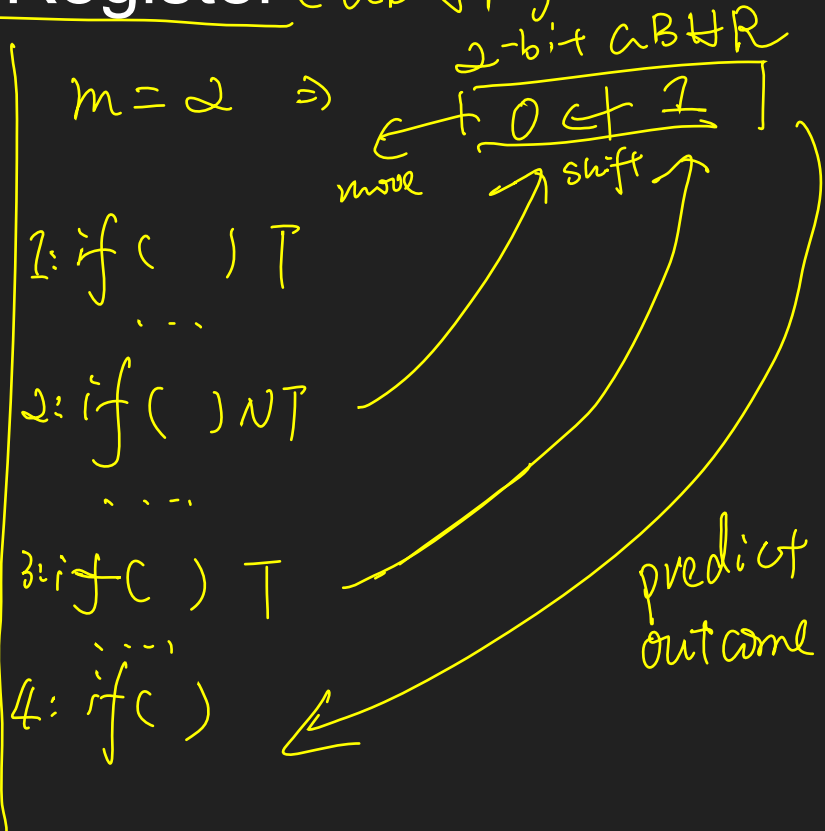 Register
2-bit GBHR
m = 2 ⇒
0 1
move shift
1: if ( ) T
...
2: if ( ) NT
....
3: if ( ) T
....
predict
outcome
4: if ( )